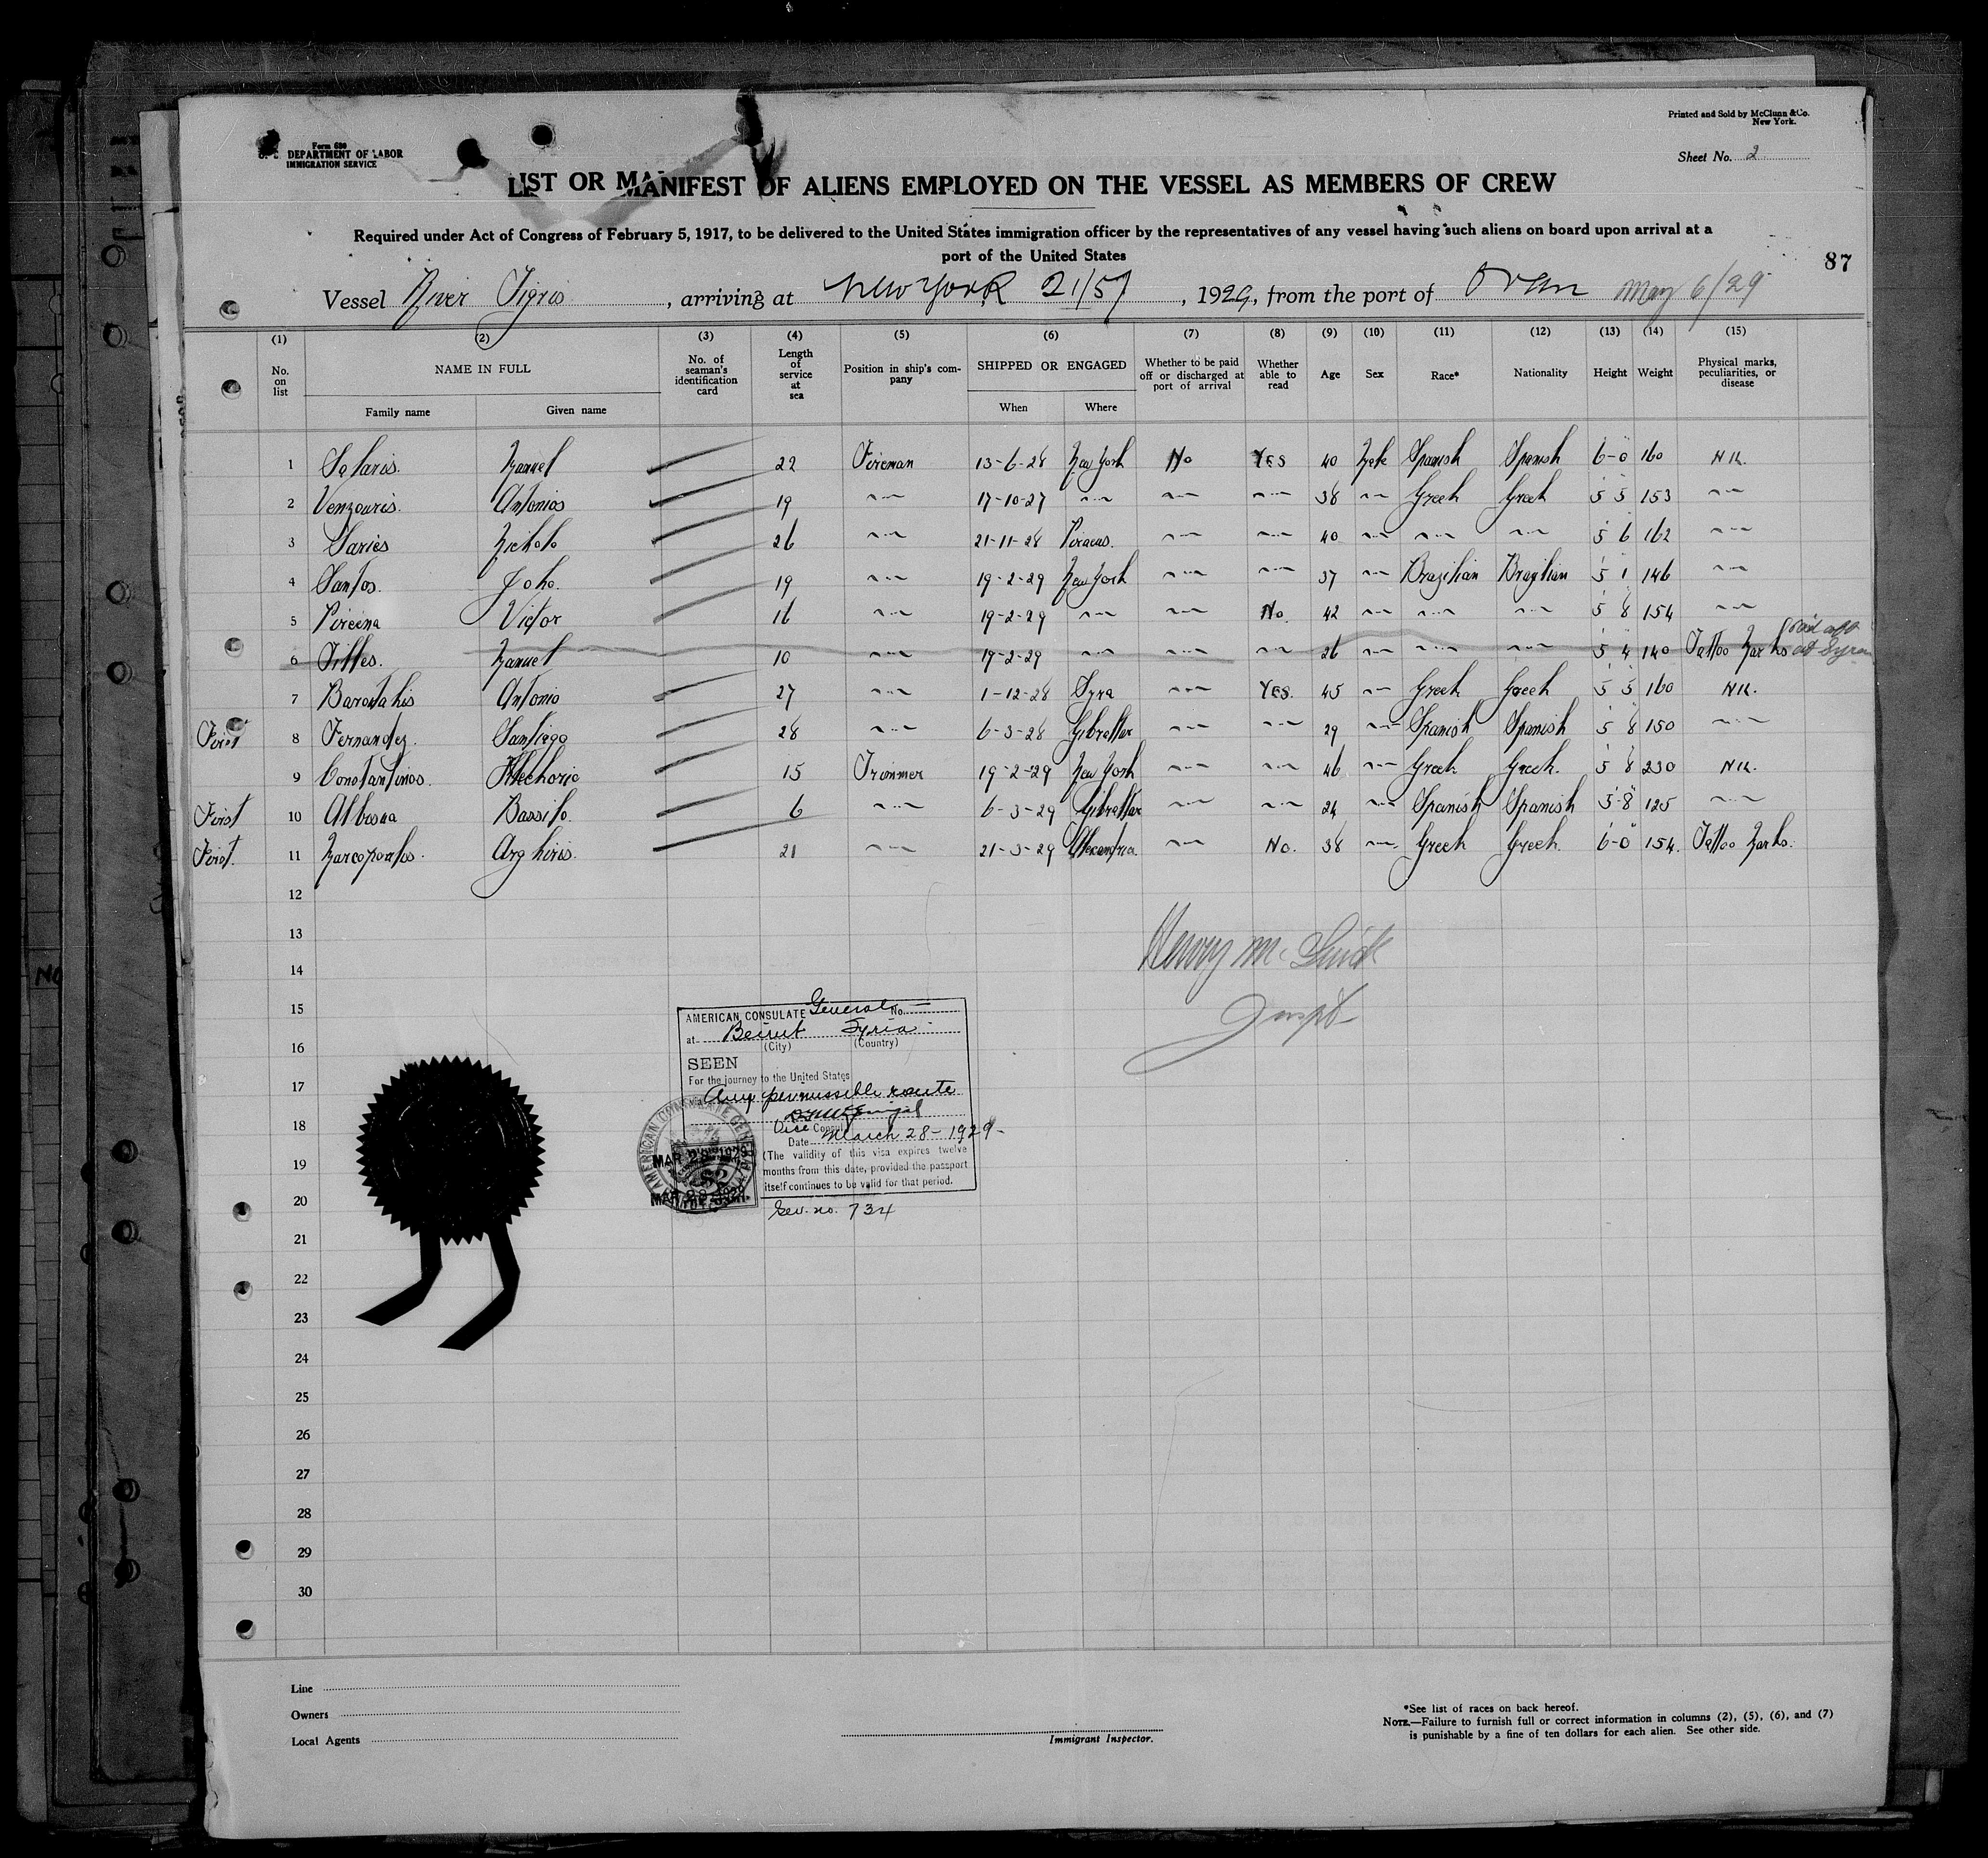 Printed and Sold by McClunn & Co.
New York.
Form 680
DEPARTMENT OF LABOR
IMMIGRATION SERVICE
Sheet No. 2
LIST OR MANIFEST OF ALIENS EMPLOYED ON THE VESSEL AS MEMBERS OF CREW
Required under Act of Congress of February 5, 1917, to be delivered to the United States immigration officer by the representatives of any vessel having such aliens on board upon arrival at a
port of the United States
87
Vessel River Tigris, arriving at New York 21/5, 1929, from the port of Oran May 6/29
(1) (2) (3) (4) (5) (6) (7) (8) (9) (10) (11) (12) (13) (14) (15)
No. on list
NAME IN FULL
Family name Given name
No. of seaman's identification card
Length of service at sea
Position in ship's company
SHIPPED OR ENGAGED
When Where
Whether to be paid off or discharged at port of arrival
Whether able to read
Age
Sex
Race*
Nationality
Height
Weight
Physical marks, peculiarities, or disease
1 Manuel 22 Fireman 13-6-28 New York No Yes 40 Male Spanish Spanish 6-0 160 Nil.
2 Venzouris. Antonios 19 17-10-27 38 Greek Greek 5 5 153
3 Saries 26 21-11-28 Piraeus. 40 5 6 162
4 Santos. 19 19-2-29 New York 37 Brazilian Brazilian 5 1 146
5 Victor 16 19-2-29 No. 42 5 8 154
6 Manuel 10 19-2-29 26 5 4 140 Tattoo Marks Paid off at Syra
7 Antonio 27 1-12-28 Syra Yes. 45 Greek Greek 5 5 160 Nil.
First 8 Fernandez. Santiago 28 6-3-28 Gibraltar 29 Spanish Spanish 5 8 150
9 Constantinos. 15 Trimmer 19-2-29 New York 46 Greek Greek. 5 8 230 Nil.
First 10 6 6-3-29 Gibraltar 24 Spanish Spanish 5-8 125
First. 11 Marcopoulos. Arghiris. 21 21-3-29 Alexandria. No. 38 Greek Greek. 6-0 154. Tattoo Marks.
12
13
14
15
16
17
18
19
20
21
22
23
24
25
26
27
28
29
30
Henry Mc
Inspt
AMERICAN CONSULATE General No.
at Beirut Syria
(City) (Country)
SEEN
For the journey to the United States
Any permissible route
Vice Consul
Date March 28-1929-
(The validity of this visa expires twelve
months from this date, provided the passport
itself continues to be valid for that period.
AMERICAN CONSULATE GENERAL
MAR 28 1929
MAR 28 1929
Ser. no. 734
Line
Owners
Local Agents
Immigrant Inspector.
*See list of races on back hereof.
NOTE.—Failure to furnish full or correct information in columns (2), (5), (6), and (7)
is punishable by a fine of ten dollars for each alien. See other side.